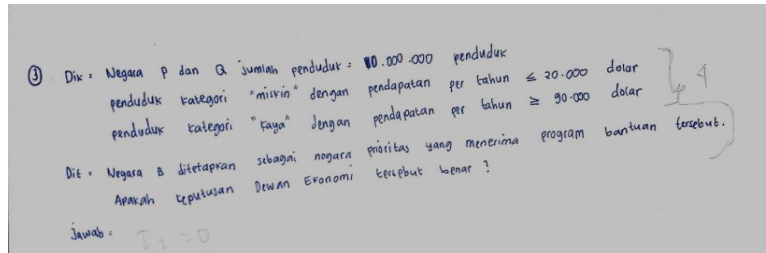 ③ Dik : Negara P dan Q jumlah penduduk = 10.000.000 penduduk
penduduk kategori "miskin" dengan pendapatan per tahun ≤ 20.000 dolar
penduduk kategori "kaya" dengan pendapatan per tahun ≥ 90.000 dolar
4
Dit : Negara B ditetapkan sebagai negara prioritas yang menerima program bantuan tersebut.
Apakah keputusan Dewan Ekonomi tersebut benar ?
Jawab :
= 0